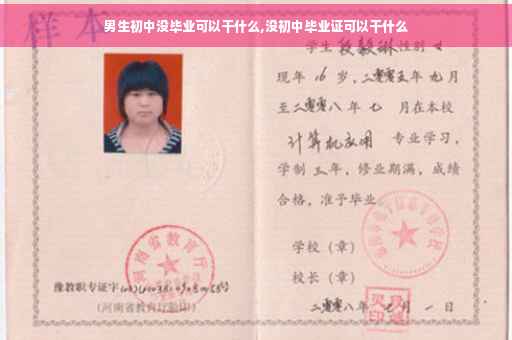 男生初中没毕业可以干什么,没初中毕业证可以干什么
样本
学生 段毅琳 性别 女
现年 16 岁，二零零五年 九月
至二零零八年 七 月在本校
计算机应用 专业学习，
学制 三年，修业期满，成绩
合格，准予毕业
学校（章）
校长（章）
二零零八年 七 月 一 日
河南省教育厅
豫教职专证字
（河南省教育厅验印）